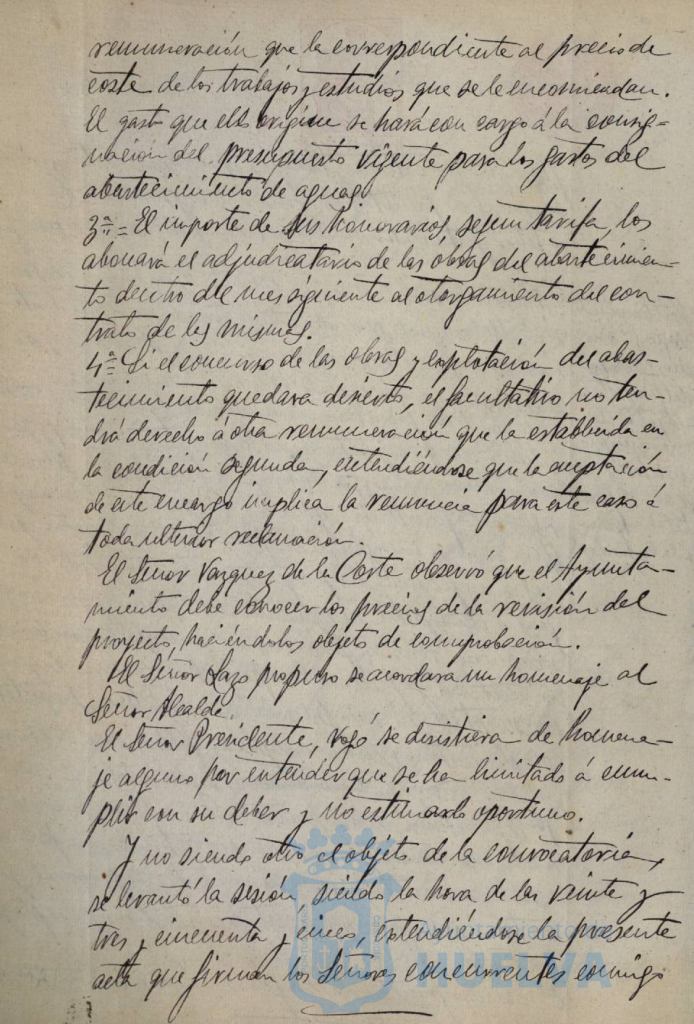 remuneración que la correspondiente al precio de
coste de los trabajos y estudios que se le encomiendan.
El gasto que ello origine se hará con cargo á la consig-
nación del presupuesto vigente para los gastos del
abastecimiento de aguas.
3ª = El importe de sus honorarios, segun tarifa, los
abonará el adjudicatario de las obras del abastecimien-
to dentro del mes siguiente al otorgamiento del con-
trato de las mismas.
4ª = Si el concurso de las obras y explotación del abas-
tecimiento quedara desierto, el facultativo no ten-
drá derecho á otra remuneración que la establecida en
la condición segunda, entendiéndose que la aceptación
de este encargo implica la renuncia para este caso á
toda ulterior reclamación.
El Señor Vazquez de la Corte observó que el Ayunta-
miento debe conocer los precios de la revisión del
proyecto, haciéndolos objeto de comprobación.
El Señor Lazo propuso se acordara un homenaje al
Señor Alcalde.
El Señor Presidente, rogó se desistiera de homena-
je alguno por entender que se ha limitado á cum-
plir con su deber y no estimarlo oportuno.
Y no siendo otro el objeto de la convocatoria,
se levantó la sesión, siendo la hora de las veinte y
tres y cincuenta y cinco, extendiéndose la presente
acta que firman los Señores concurrentes conmigo
HUELVA